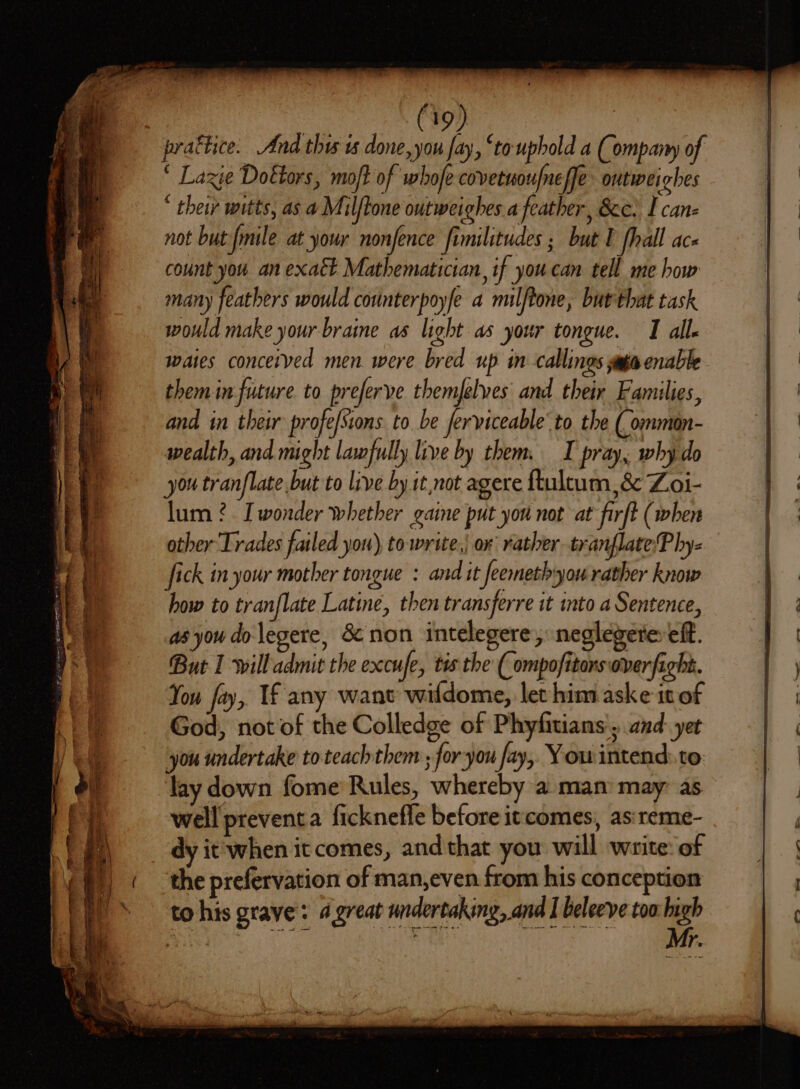 (19)
practice. And this is done, you ſay, ‘to uphold a Company of
‘ Lazie Doctors, moſt of whoſe covetuouſneſſe outweighes
‘ their witts, as a Milſtone outweighes a feather, &c. I can-
not but ſmile at your nonſence ſimilitudes ; but I ſhall ac-
count you an exact Mathematician, if you can tell me how
many feathers would counterpoyſe a milſtone, but that task
would make your braine as light as your tongue. I all-
waies conceived men were bred up in callings enable
them in future to preſerve themſelves and their Families,
and in their profeſsions to be ſerviceable to the Common-
wealth, and might lawfully live by them. I pray, why do
you tranſlate but to live by it, not agere ſtultum, & Zoi-
lum ? I wonder whether gaine put you not at firſt (when
other Trades failed you) to write, or rather tranſlate Phy-
ſick in your mother tongue : and it ſeemeth you rather know
how to tranſlate Latine, then transferre it into a Sentence,
as you do legere, & non intelegere, neglegere eſt.
But I will admit the excuſe, tis the Compoſitors overſight.
You ſay, If any want wiſdome, let him aske it of
God, not of the Colledge of Phyſitians ; and yet
you undertake to teach them ; for you ſay, You intend to
lay down ſome Rules, whereby a man may as
well prevent a ſickneſſe before it comes, as reme-
dy it when it comes, and that you will write of
the preſervation of man, even from his conception
to his grave : a great undertaking, and I beleeve too high
Mr.